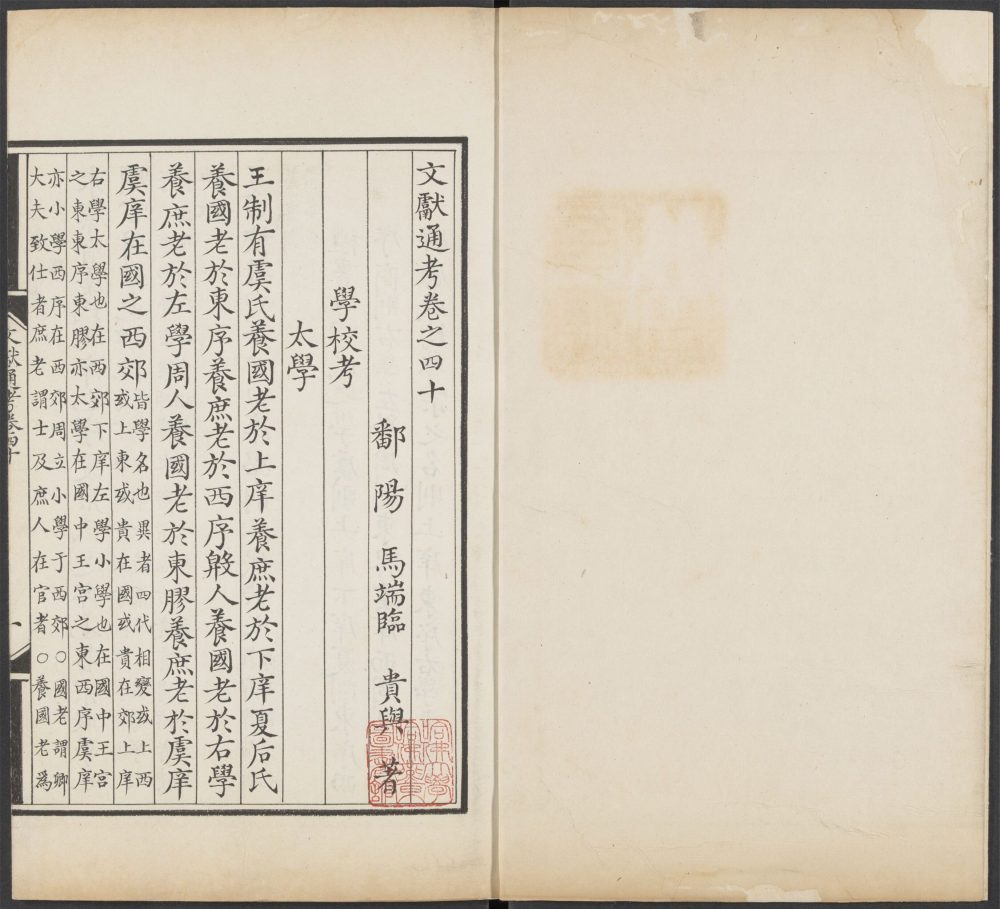 文獻通考卷之四十
鄱陽 馬端臨 貴與 著
學校考
太學
王制有虞氏養國老於上庠養庶老於下庠夏后氏
養國老於東序養庶老於西序殷人養國老於右學
養庶老於左學周人養國老於東膠養庶老於虞庠
虞庠在國之西郊
皆學名也異者四代相變或上西
或上東或貴在國或貴在郊上庠
右學太學也在西郊下庠左學小學也在國中王宮
之東東序東膠亦太學在國中王宮之東西序虞庠
亦小學西序在西郊周立小學于西郊○國老謂卿
大夫致仕者庶老謂士及庶人在官者○養國老爲
文獻通考卷四十
一